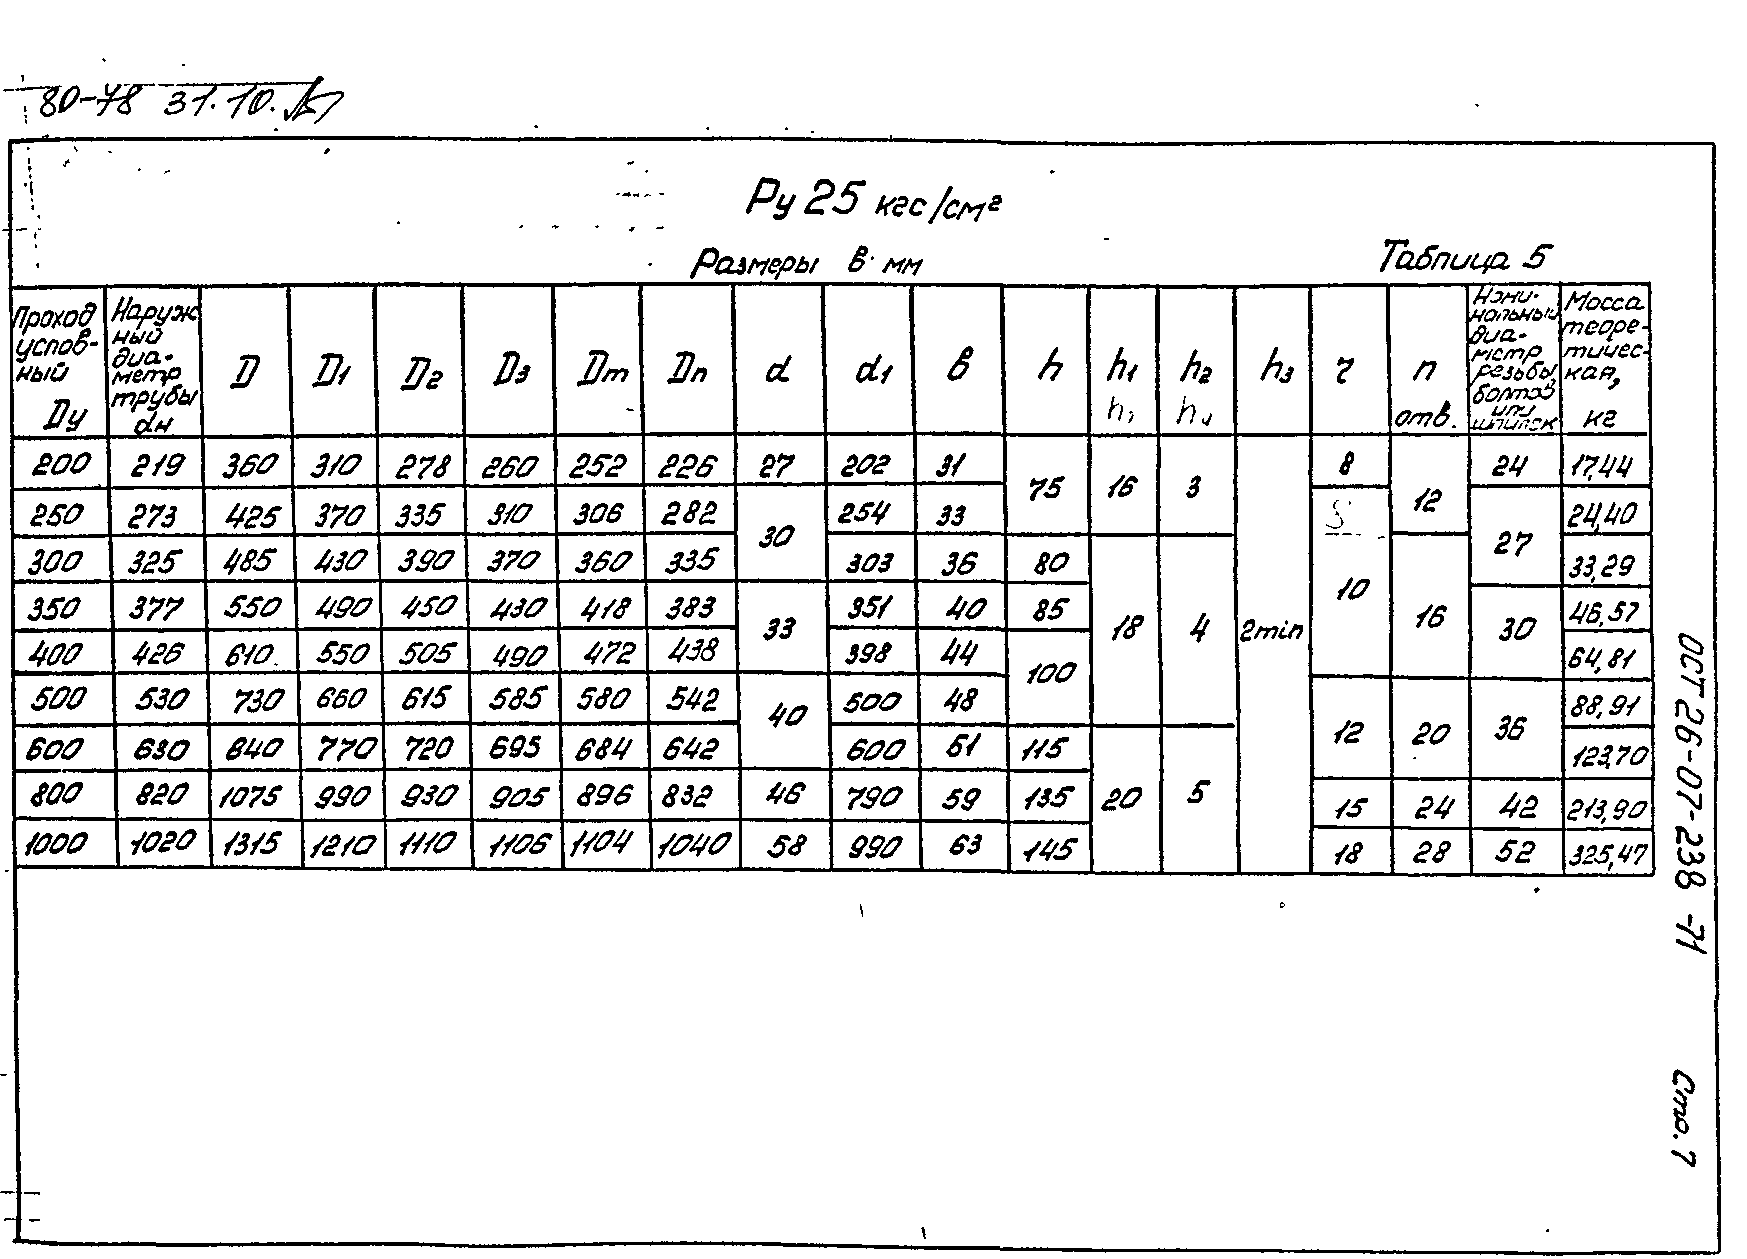 80-78 31.10.
Ру 25 кгс/см²
Размеры в мм
Таблица 5
Проход условный Dу | Наружный диаметр трубы dн | D | D1 | D2 | D3 | Dm | Dn | d | d1 | в | h | h1 | h2 | h3 | r | n отв. | Номинальный диаметр резьбы болтов или шпилек | Масса теоретическая, кг
200 | 219 | 360 | 310 | 278 | 260 | 252 | 226 | 27 | 202 | 31 | 75 | 16 | 3 | 2min | 8 | 12 | 24 | 17,44
250 | 273 | 425 | 370 | 335 | 310 | 306 | 282 | 30 | 254 | 33 | 10 | 27 | 24,40
300 | 325 | 485 | 430 | 390 | 370 | 360 | 335 | 303 | 36 | 80 | 18 | 4 | 16 | 33,29
350 | 377 | 550 | 490 | 450 | 430 | 418 | 383 | 33 | 351 | 40 | 85 | 30 | 46,57
400 | 426 | 610 | 550 | 505 | 490 | 472 | 438 | 398 | 44 | 100 | 64,81
500 | 530 | 730 | 660 | 615 | 585 | 580 | 542 | 40 | 500 | 48 | 12 | 20 | 36 | 88,91
600 | 630 | 840 | 770 | 720 | 695 | 684 | 642 | 600 | 51 | 115 | 20 | 5 | 123,70
800 | 820 | 1075 | 990 | 930 | 905 | 896 | 832 | 46 | 790 | 59 | 135 | 15 | 24 | 42 | 213,90
1000 | 1020 | 1315 | 1210 | 1110 | 1106 | 1104 | 1040 | 58 | 990 | 63 | 145 | 18 | 28 | 52 | 325,47
ОСТ 26-07-238-71
Стр. 7